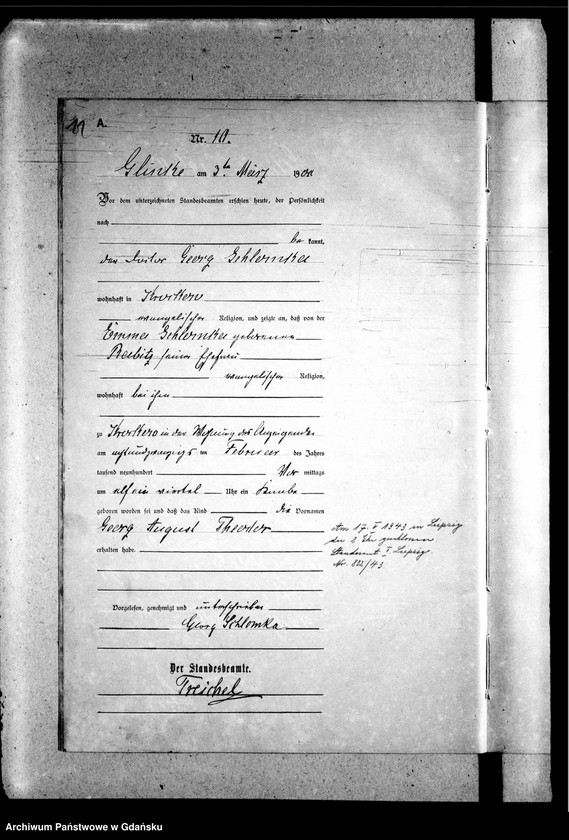 A.
Nr. 10.
Glinke am 3ten März 1900
Vor dem unterzeichneten Standesbeamten erschien heute, der Persönlichkeit
nach
be kannt,
der Georg Schlomka
wohnhaft in
evangelischer Religion, und zeigte an, daß von der
Emma Schlomka geborenen
seiner Ehefrau
evangelischer Religion,
wohnhaft bei ihm
zu in der Wohnung des Anzeigenden
am im Februar des Jahres
tausend neunhundert Vor mittags
um elf ein viertel Uhr ein Knabe
geboren worden sei und daß das Kind die Vornamen
Georg August Theodor
erhalten habe.
Am 17. V 1943 in Leipzig
der
Standesamt I Leipzig
Nr. 822/43
Vorgelesen, genehmigt und unterschrieben
Georg Schlomka
Der Standesbeamte.
Treichel
Archiwum Państwowe w Gdańsku